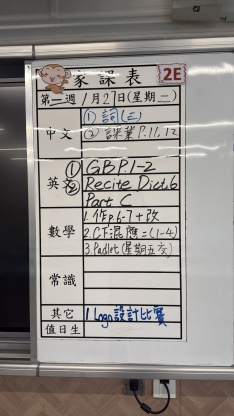 家課表 2E
第二週 1月27日(星期一)
中文 ① 詞(三)
② 課業P.11,12
英文 ① GB P.1-2
② Recite Dict.6
Part C
數學 1.作P.6-7+改
2.CF混應二(1-4)
3.Padlet(星期五交)
常識
其它 1.Logo設計比賽
值日生